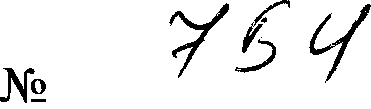 № 754